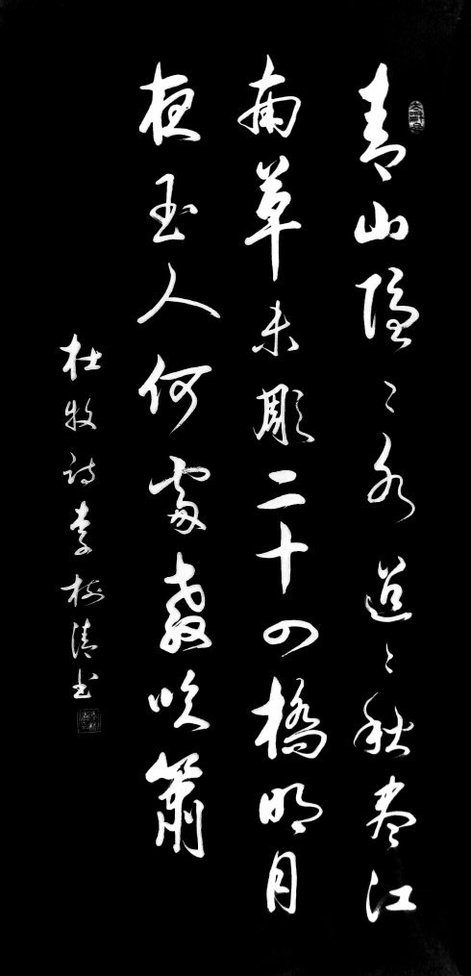 青山隐〻水迢〻秋尽江
南草未彫二十四橋明月
夜玉人何處教吹簫
杜牧诗李树清书